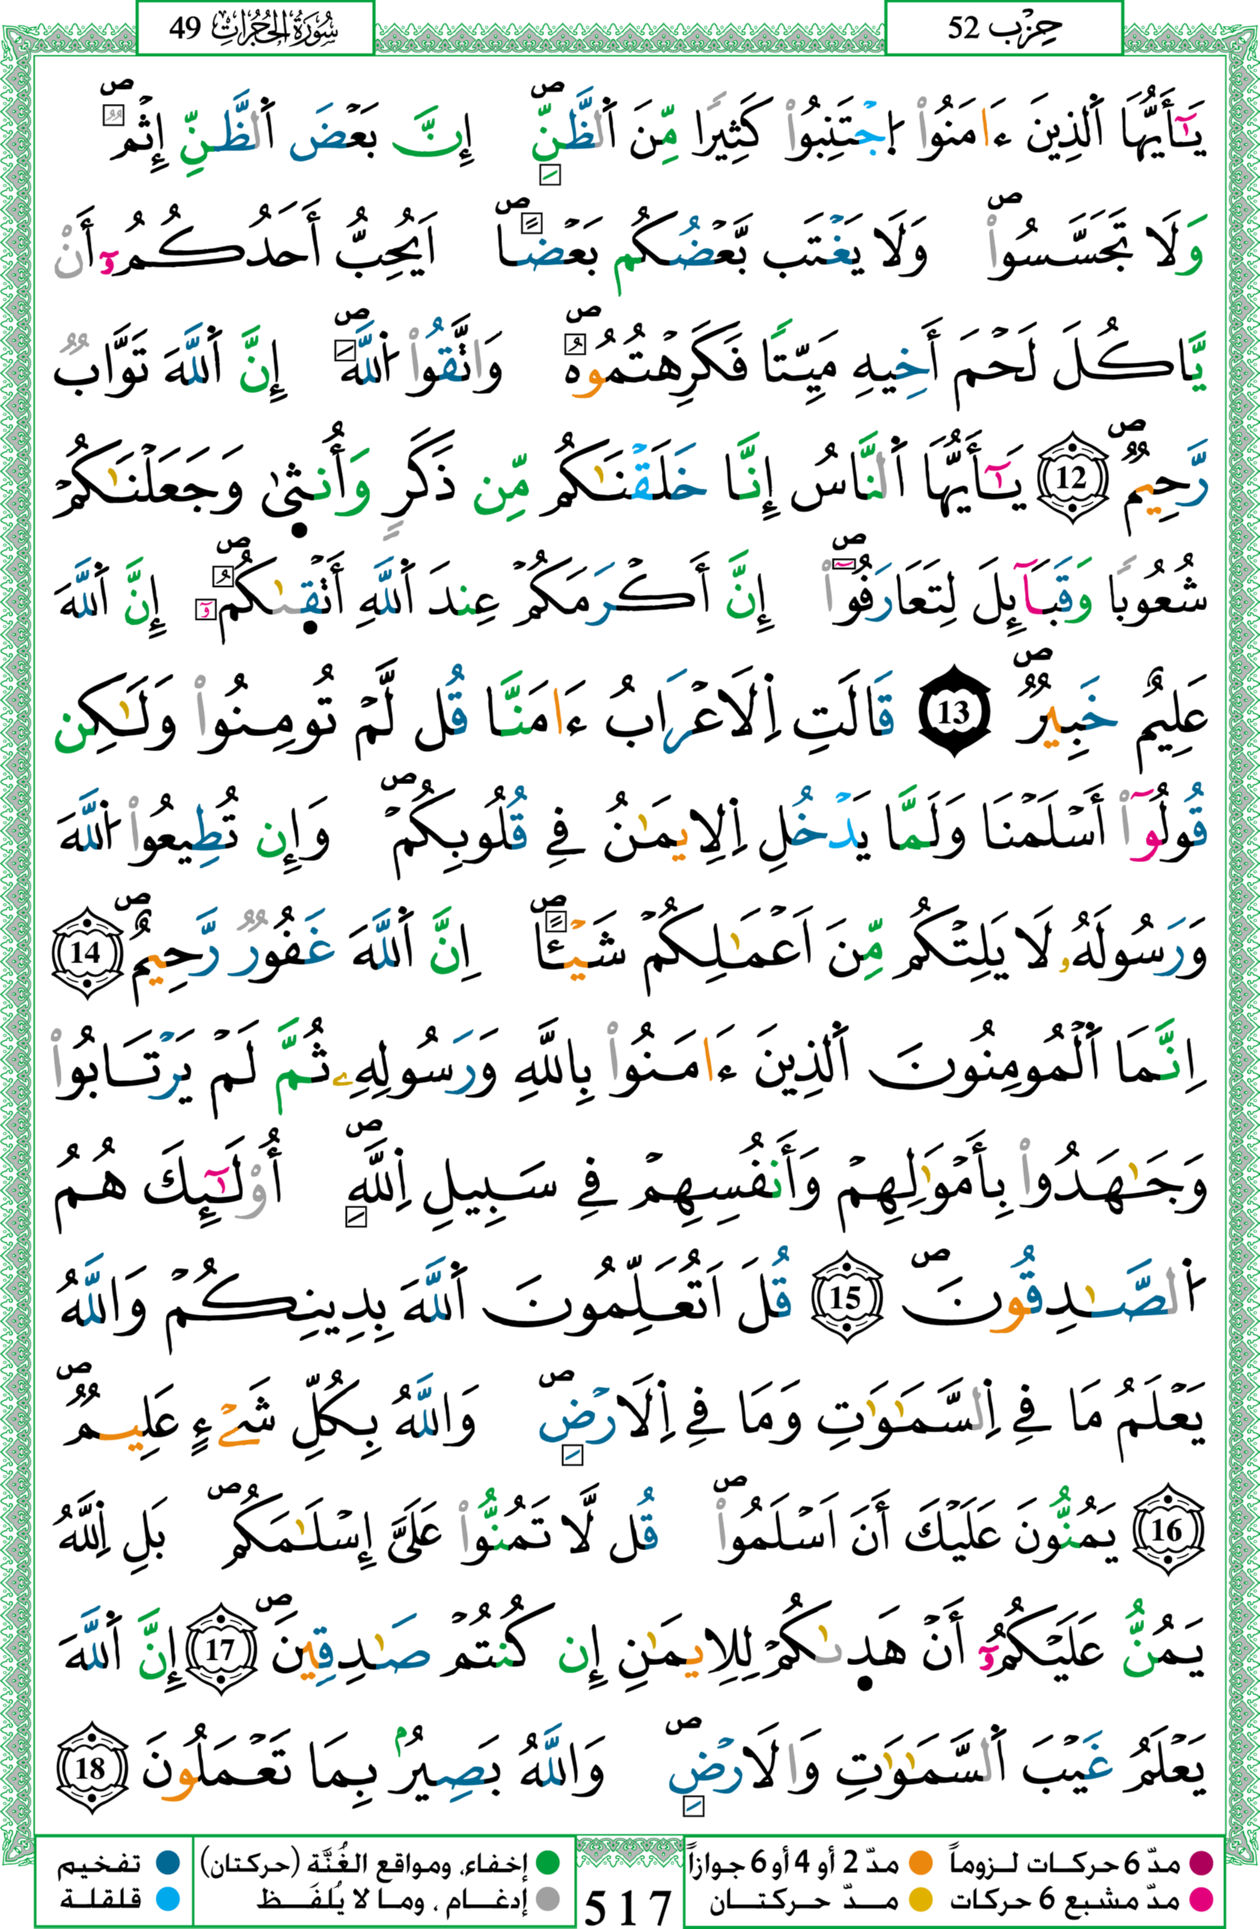 سُورَةُ الحُجُرَاتِ 49
حِزْب 52
يَٰٓأَيُّهَا اَ۬لذِينَ ءَامَنُواْ اُ۪جْتَنِبُواْ كَثِيراٗ مِّنَ اَ۬لظَّنِّۖ إِنَّ بَعْضَ اَ۬لظَّنِّ إِثْمٞۖ
وَلَا تَجَسَّسُواْۖ وَلَا يَغْتَب بَّعْضُكُم بَعْضاًۖ اَيُحِبُّ أَحَدُكُمُۥٓ أَنْ
يَّاكُلَ لَحْمَ أَخِيهِ مَيِّتاٗ فَكَرِهْتُمُوهُۖ وَاتَّقُواْ اُ۬للَّهَۖ إِنَّ اَ۬للَّهَ تَوَّابٞ
رَّحِيمٞۖ 12 يَٰٓأَيُّهَا اَ۬لنَّاسُ إِنَّا خَلَقْنَٰكُم مِّن ذَكَرٖ وَأُنث۪يٰ وَجَعَلْنَٰكُمْ
شُعُوباٗ وَقَبَآئِلَ لِتَعَارَفُوٓاْۖ إِنَّ أَكْرَمَكُمْ عِندَ اَ۬للَّهِ أَتْق۪يٰكُمُۥٓۖ إِنَّ اَ۬للَّهَ
عَلِيمٌ خَبِيرٞۖ 13 قَالَتِ اِ۬لَاعْرَابُ ءَامَنَّا قُل لَّمْ تُومِنُواْ وَلَٰكِن
قُولُوٓاْ أَسْلَمْنَا وَلَمَّا يَدْخُلِ اِ۬لِايمَٰنُ فِے قُلُوبِكُمْۖ وَإِن تُطِيعُواْ اُ۬للَّهَ
وَرَسُولَهُۥ لَا يَلِتْكُم مِّنَ اَعْمَٰلِكُمْ شَيْـٔاًۖ اِنَّ اَ۬للَّهَ غَفُورٞ رَّحِيمٌۖ 14
اِنَّمَا اَ۬لْمُومِنُونَ اَ۬لذِينَ ءَامَنُواْ بِاللَّهِ وَرَسُولِهِۦ ثُمَّ لَمْ يَرْتَابُواْ
وَجَٰهَدُواْ بِأَمْوَٰلِهِمْ وَأَنفُسِهِمْ فِے سَبِيلِ اِ۬للَّهِۖ أُوْلَٰٓئِكَ هُمُ
اُ۬لصَّٰدِقُونَۖ 15 قُلَ اَتُعَلِّمُونَ اَ۬للَّهَ بِدِينِكُمْ وَاللَّهُ
يَعْلَمُ مَا فِے اِ۬لسَّمَٰوَٰتِ وَمَا فِے اِ۬لَارْضِۖ وَاللَّهُ بِكُلِّ شَےْءٍ عَلِيمٞۖ
16 يَمُنُّونَ عَلَيْكَ أَنَ اَسْلَمُواْۖ قُل لَّا تَمُنُّواْ عَلَيَّ إِسْلَٰمَكُمۖ بَلِ اِ۬للَّهُ
يَمُنُّ عَلَيْكُمُۥٓ أَنْ هَد۪يٰكُمْ لِلِايمَٰنِ إِن كُنتُمْ صَٰدِقِينَۖ 17 إِنَّ اَ۬للَّهَ
يَعْلَمُ غَيْبَ اَ۬لسَّمَٰوَٰتِ وَالَارْضِۖ وَاللَّهُ بَصِيرُۢ بِمَا تَعْمَلُونَ 18
مدّ 6 حركات لـزوماً مدّ 2 أو 4 أو 6 جوازاً
إخفاء، ومواقع الغُنَّة (حركتان) تفخيم
مدّ مشبع 6 حركات مـدّ حـركتـان
إدغـام ، ومـا لا يُلفَـظ قلقلة
517